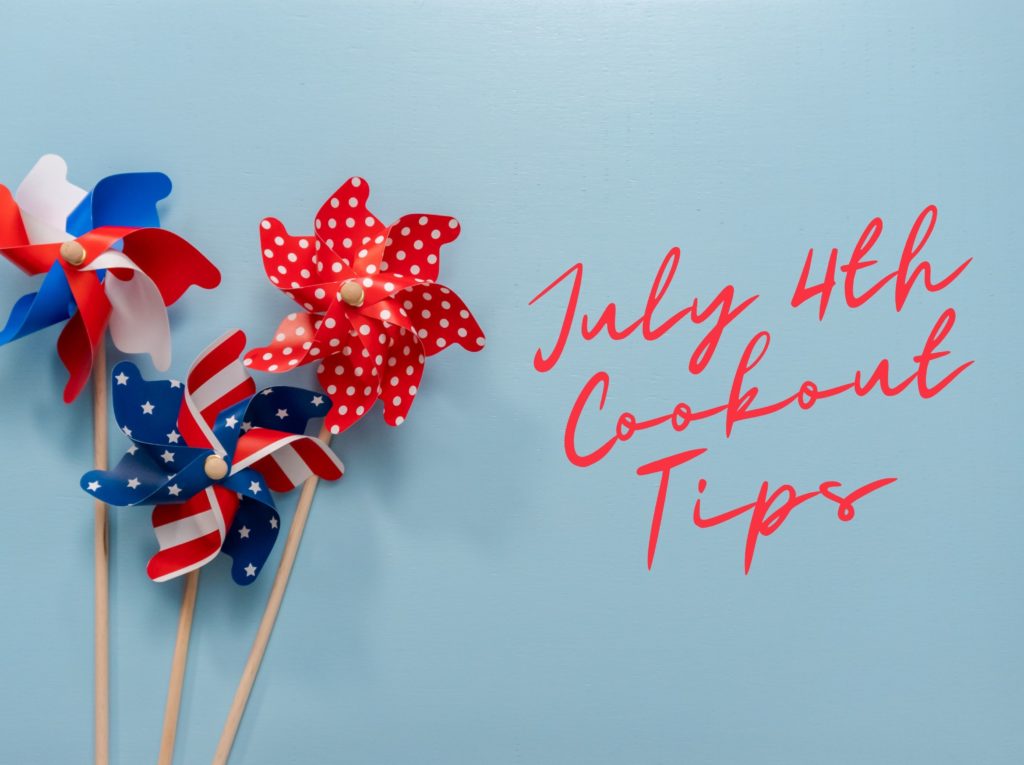 July 4th
Cookout
Tips